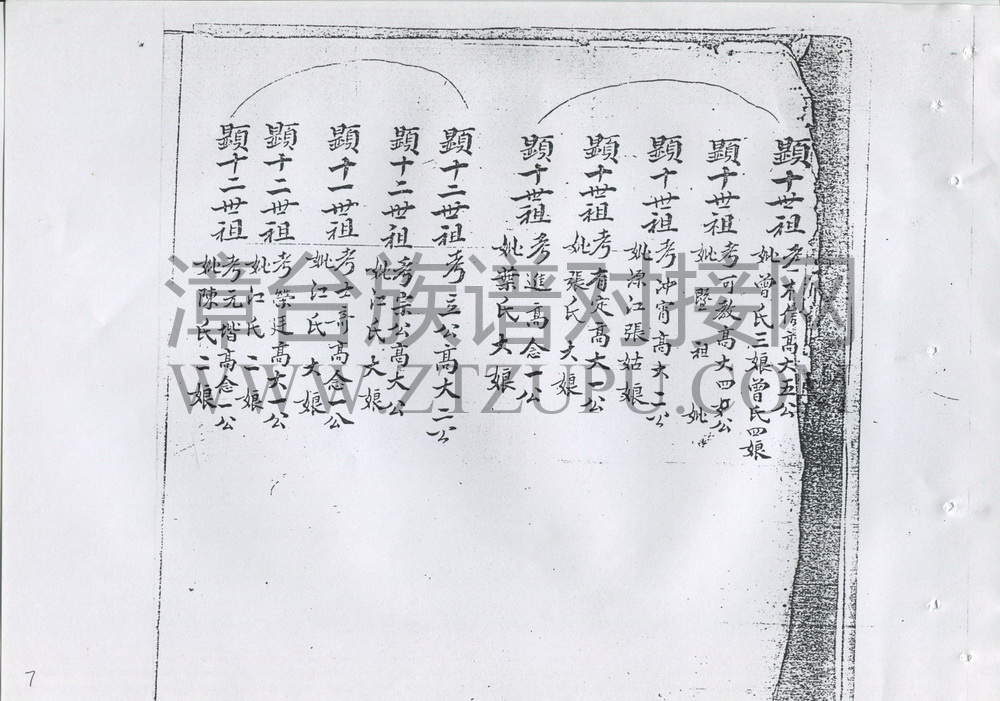 顯十世祖
考 信高大五公
妣曾氏二娘曾氏四娘
顯十世祖
考可教高大四 公
妣 暨 祖 妣
顯十世祖
考冲宵高大二公
妣 江張姑娘
顯十世祖
考有 高大一公
妣張氏大娘
顯十世祖
考進高念一公
妣葉氏大娘
顯十二世祖
考立公高大二公
顯十二世祖
考宗公高大 公
妣江氏大娘
顯十一世祖
考士 高念 公
妣江氏大娘
顯十二世祖
考榮廷高大一公
妣江氏二娘
顯十二世祖
考元楷高念一公
妣陳氏二娘
漳台族谱对接网
WWW.ZTZUPU.COM
7